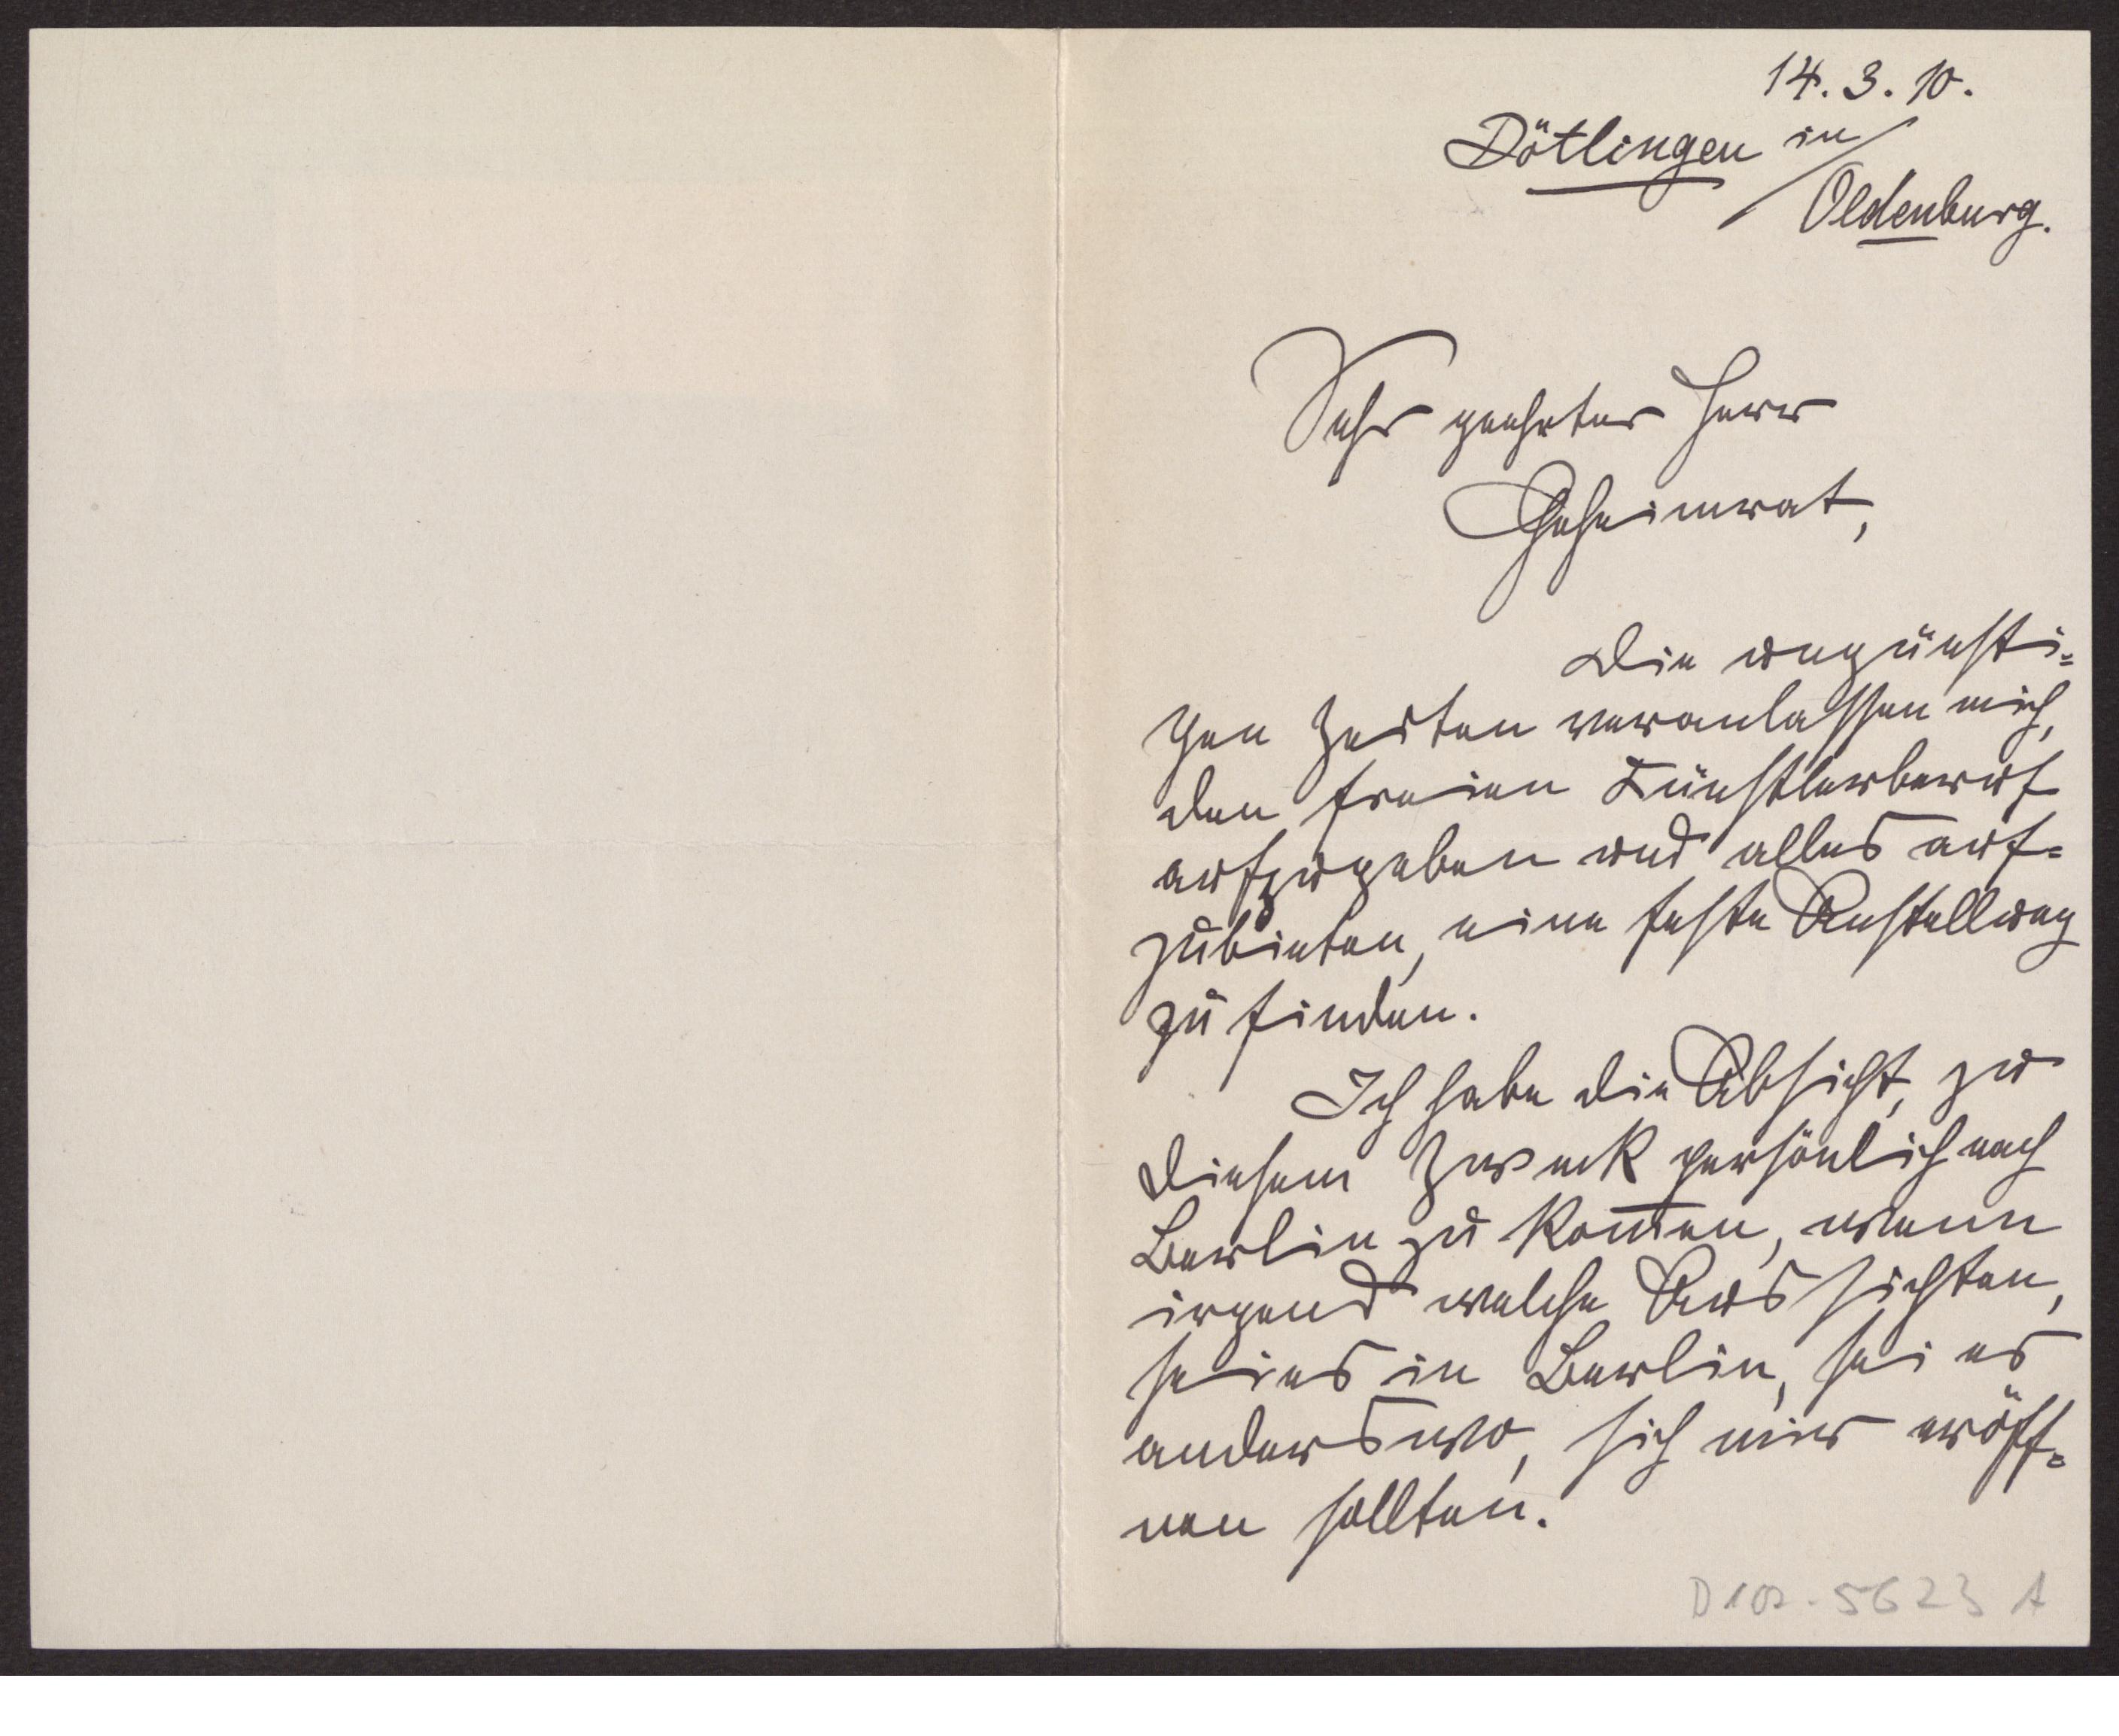 14. 3. 10.
Dötlingen in/
Oldenburg.
Sehr geehrter Herr
Geheimrat,
Die ungünsti-
gen Zeiten veranlassen mich,
den freien Künstlerberuf
aufzugeben und alles auf-
zubieten, eine feste Anstellung
zu finden.
Ich habe die Absicht, zu
diesem Zweck persönlich nach
Berlin zu kom̄en, wenn
irgend welche Aussichten,
sei es in Berlin, sei es
anderswo, sich mir eröff-
nen sollten.
D 102. 5623 A